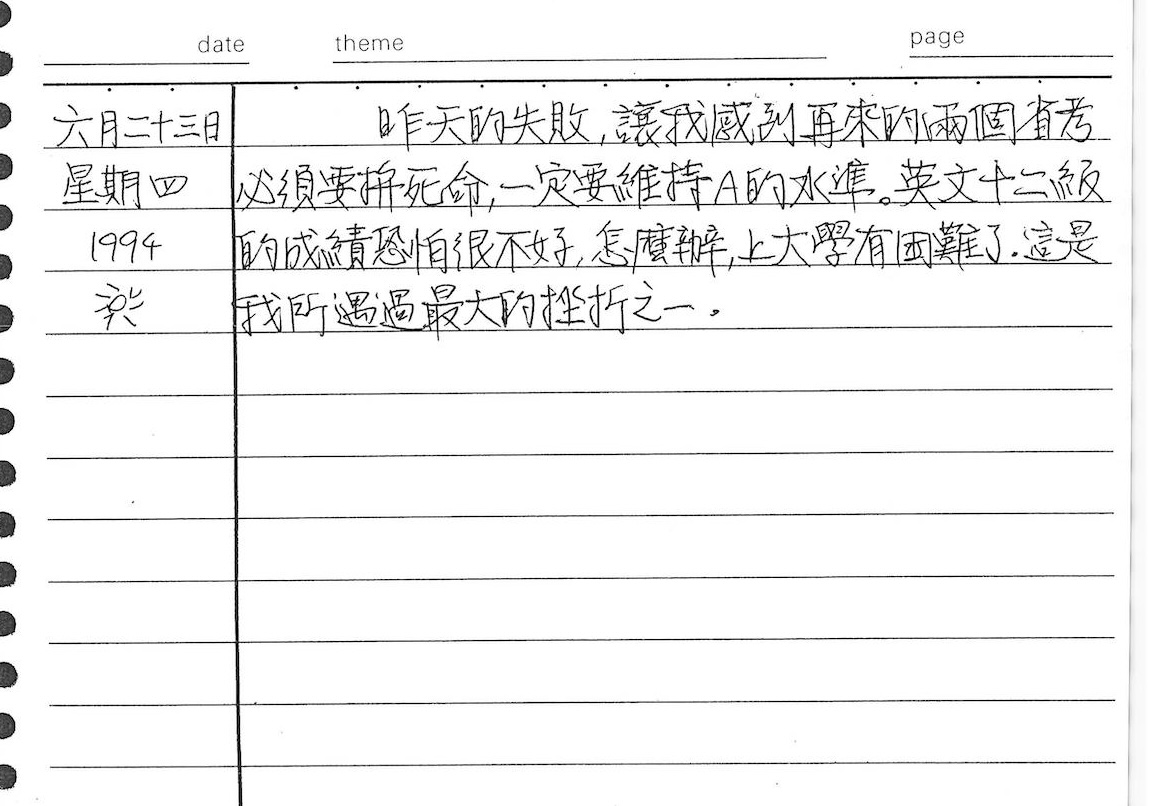 date theme page
六月二十三日
星期四
1994
昨天的失敗,讓我感到再來的兩個省考
必須要拚死命,一定要維持A的水準。英文十二級
的成績恐怕很不好,怎麼辦,上大學有困難了.這是
我所遇過最大的挫折之一。